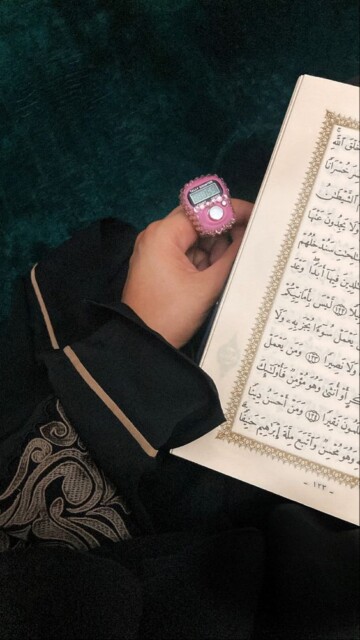 خَلْقَ ٱللَّهِ
خُسْرَانًا
ٱلشَّيْطَٰنُ
وَلَا يَجِدُونَ عَنْهَا
سَنُدْخِلُهُمْ
فِيهَآ أَبَدًا وَعْدَ
١٢٢ لَّيْسَ بِأَمَانِيِّكُمْ
يَعْمَلْ سُوٓءًا يُجْزَ بِهِۦ وَلَا
وَلَا نَصِيرًا ١٢٣ وَمَن يَعْمَلْ
أَوْ أُنثَىٰ وَهُوَ مُؤْمِنٌ فَأُو۟لَٰٓئِكَ
نَقِيرًا ١٢٤ وَمَنْ أَحْسَنُ دِينًا
وَهُوَ مُحْسِنٌ وَٱتَّبَعَ مِلَّةَ إِبْرَٰهِيمَ حَنِيفًا
- ١٢٣ -